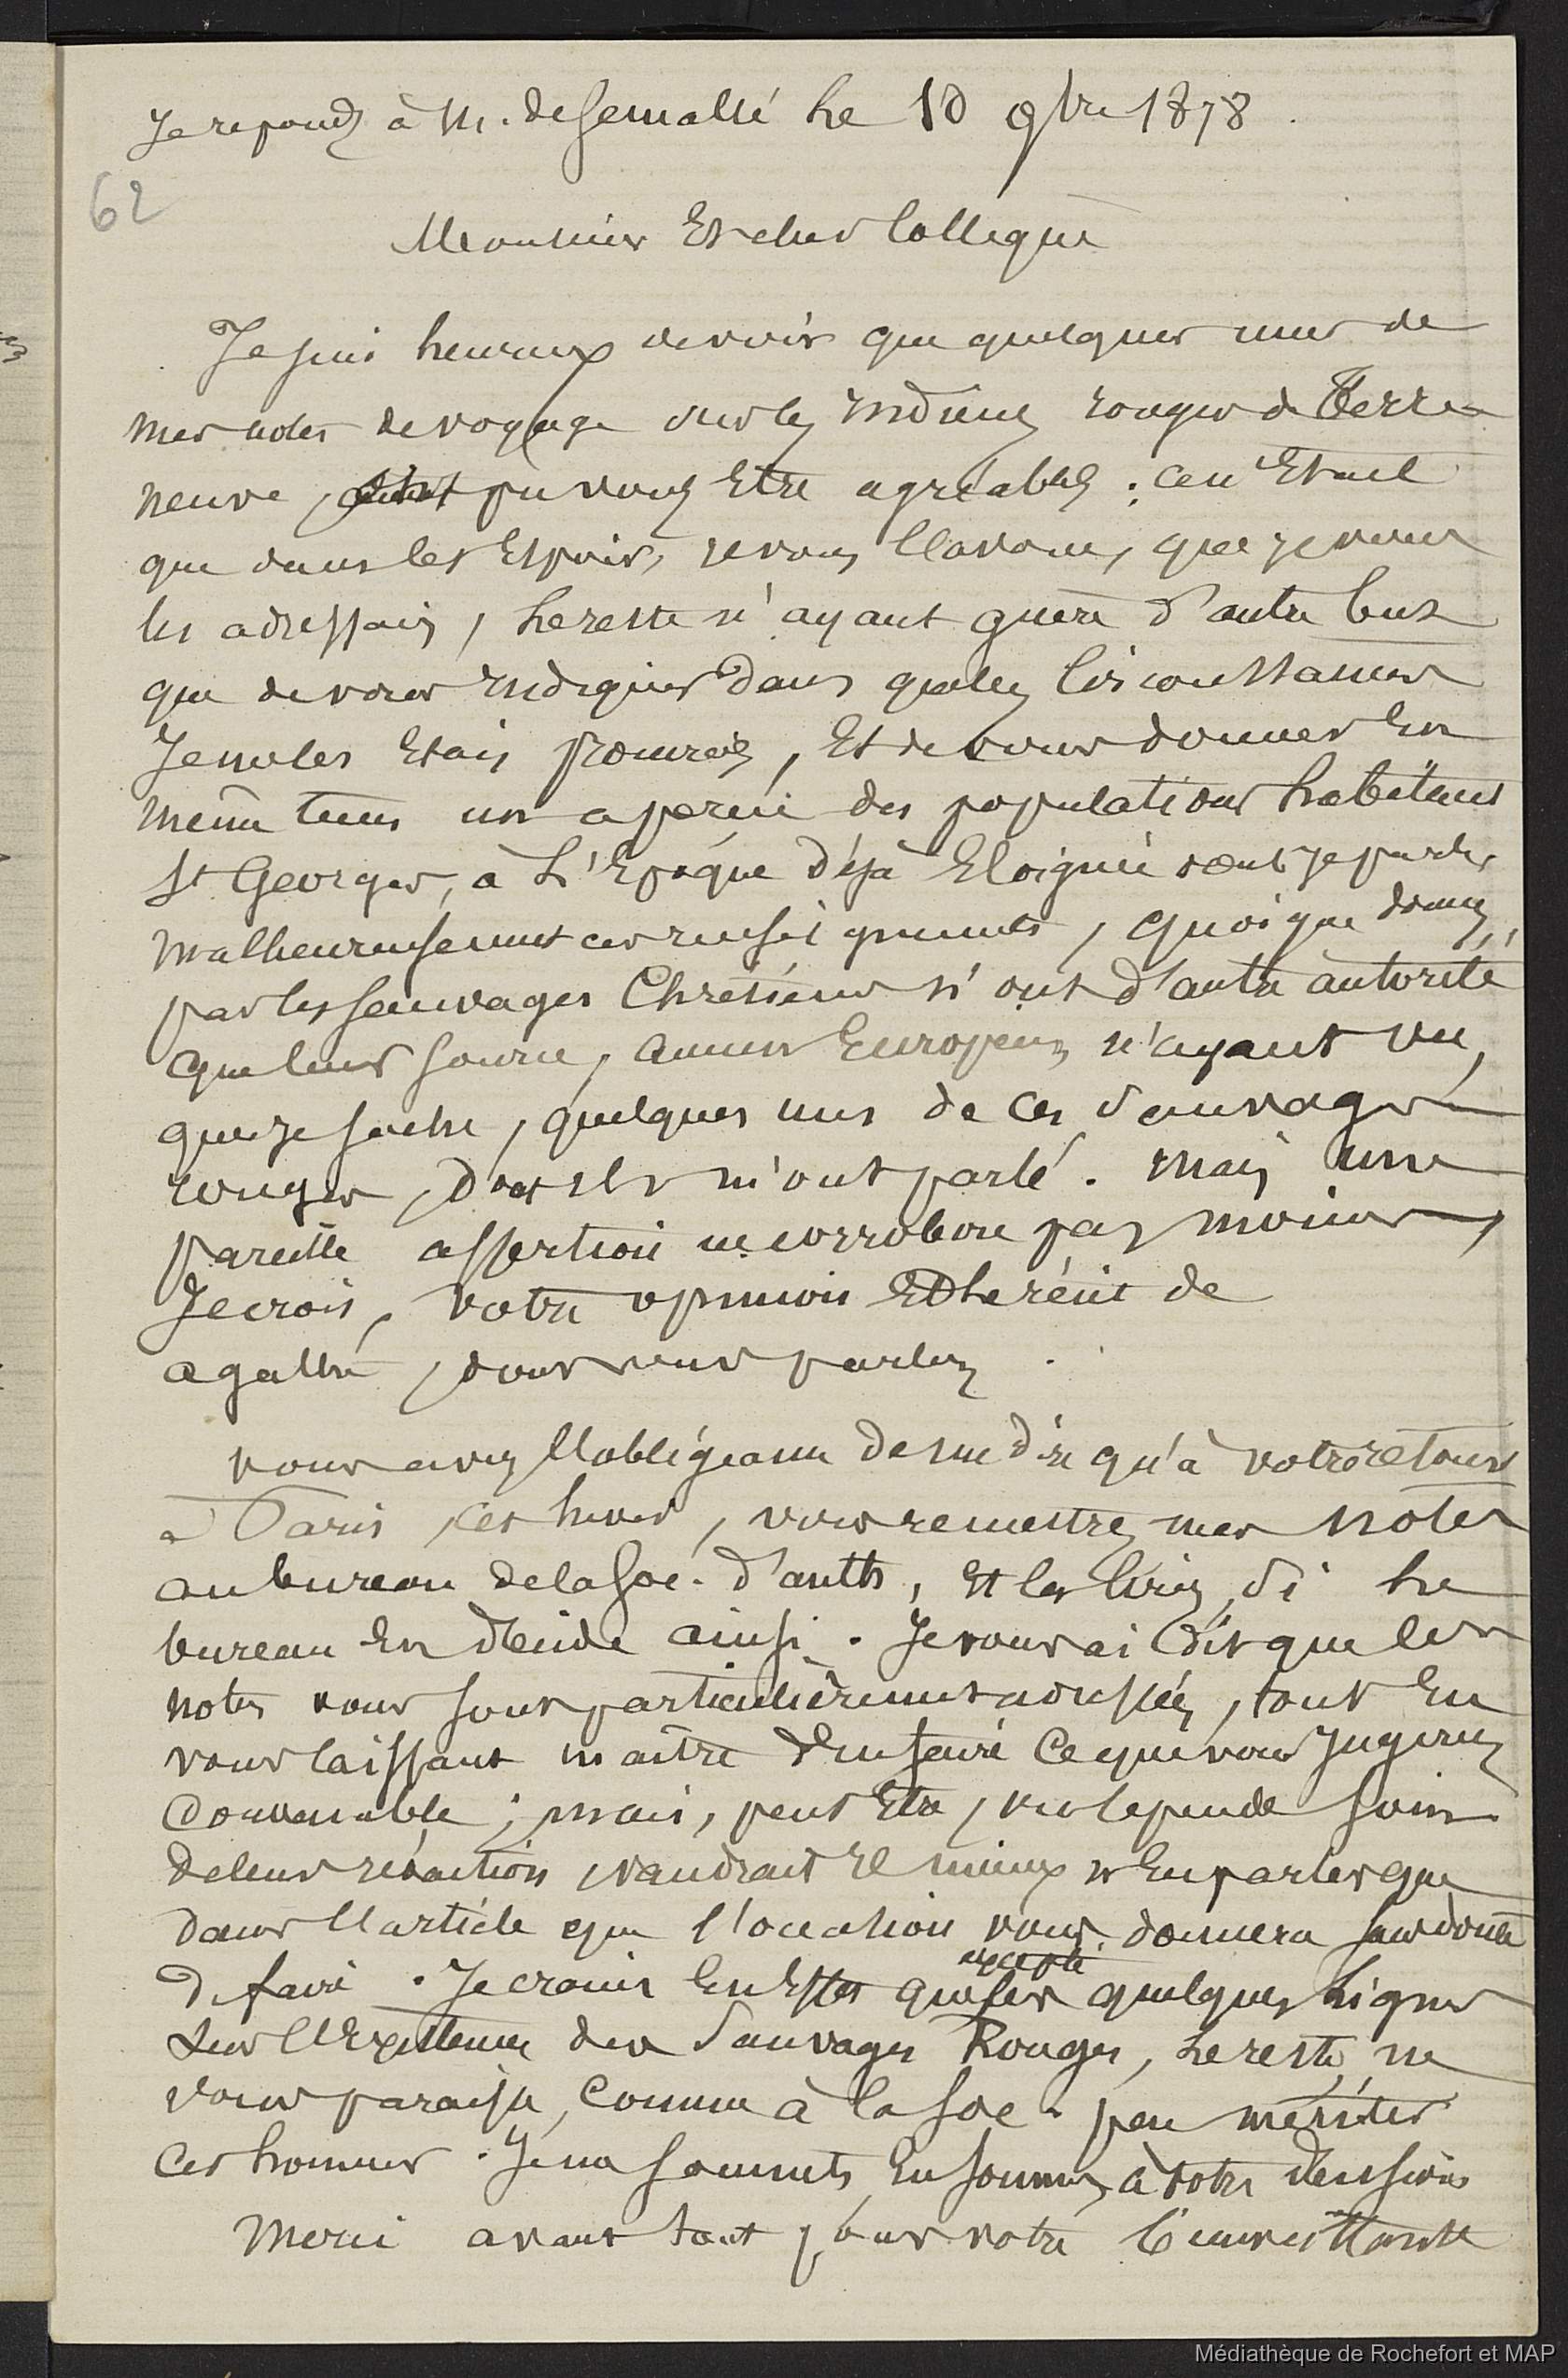 Je reponds à M. de Semallé Le 10 9bre 1878.
62
Monsieur Et cher Collegue
Je suis heureux de voir que quelques unes de
mes notes de voyage sur les Indiens rouges de Terre
neuve, pu vous Etre agréables ; ce n'Etait
que dans cet Espoir, je vous l'avoue, que je vous
les adressais, Le reste n'ayant guère d'autre but
que de vous Indiquer dans quelles Circonstances
Je me les Etais procurées, Et de vous donner En
même tems un aperçu des populations habitant
St Georges, à L'Epoque déjà Eloignée dont je parle,
malheureusement ces renseignements, quoique donnés,
par les sauvages Chrétiens n'ont d'autre autorité
que leur source, aucun Européen, n'ayant vu,
que je sache, quelques uns de ces Sauvages
rouges, dont Ils m'ont parlé. Mais une
pareille assertion ne corrobore pas moins,
Je crois, votre opinion Et le récit de
agathe, dont vous parlez.
vous avez l'obligeance de me dire qu'à votre retour
à Paris, cet hiver, vous remettrez mes notes
au bureau de la Soc. d'anth, Et les lirez, si Le
bureau En décide ainsi. Je vous ai dit que les
notes vous sont particulièrement adressées, tout En
vous laissant maître d'En faire Ce que vous Jugerez
Convenable ; mais, peut Etre, vu le peu de soin
de leur rédaction, vaudrait Il mieux n'En parler que
dans l'article que l'occasion vous donnera sans doute
de faire. Je crains En Effet que
excepté
quelques Lignes
sur l'Existence des Sauvages Rouges, Le reste, ne
vous paraisse, Comme à la Soc. peu mériter
cet honneur. Je me soumets, En somme, à votre décision
Merci avant tout pour votre bienveillante
Médiathèque de Rochefort et MAP